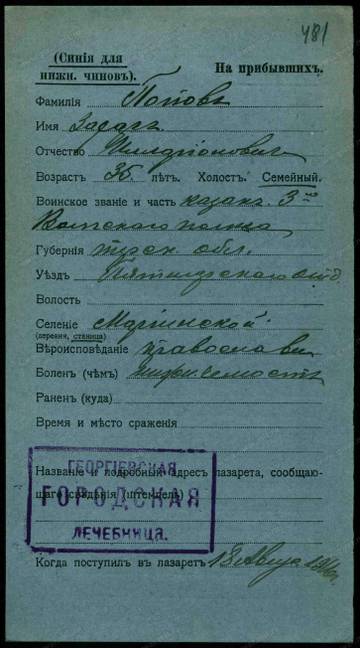 481
(Синія для
нижн. чиновъ).
На прибывшихъ.
Фамилія Поповъ
Имя
Отчество Илларіоновичъ
Возрастъ 35. лѣтъ. Холост. Семейный.
Воинское званіе и часть казакъ. 3го
полка
Губернія Терск. обл.
Уѣздъ Пятигорскаго отд
Волость
Селеніе Маріинской
(деревня, станица)
Вѣроисповѣданіе православн
Боленъ (чѣмъ)
Раненъ (куда)
Время и мѣсто сраженія
Названіе и подробный адресъ лазарета, сообщаю-
щаго свѣдѣнія (штемпель)
ГЕОРГІЕВСКАЯ
ГОРОДСКАЯ
ЛЕЧЕБНИЦА.
Когда поступилъ въ лазаретъ 13 Августа